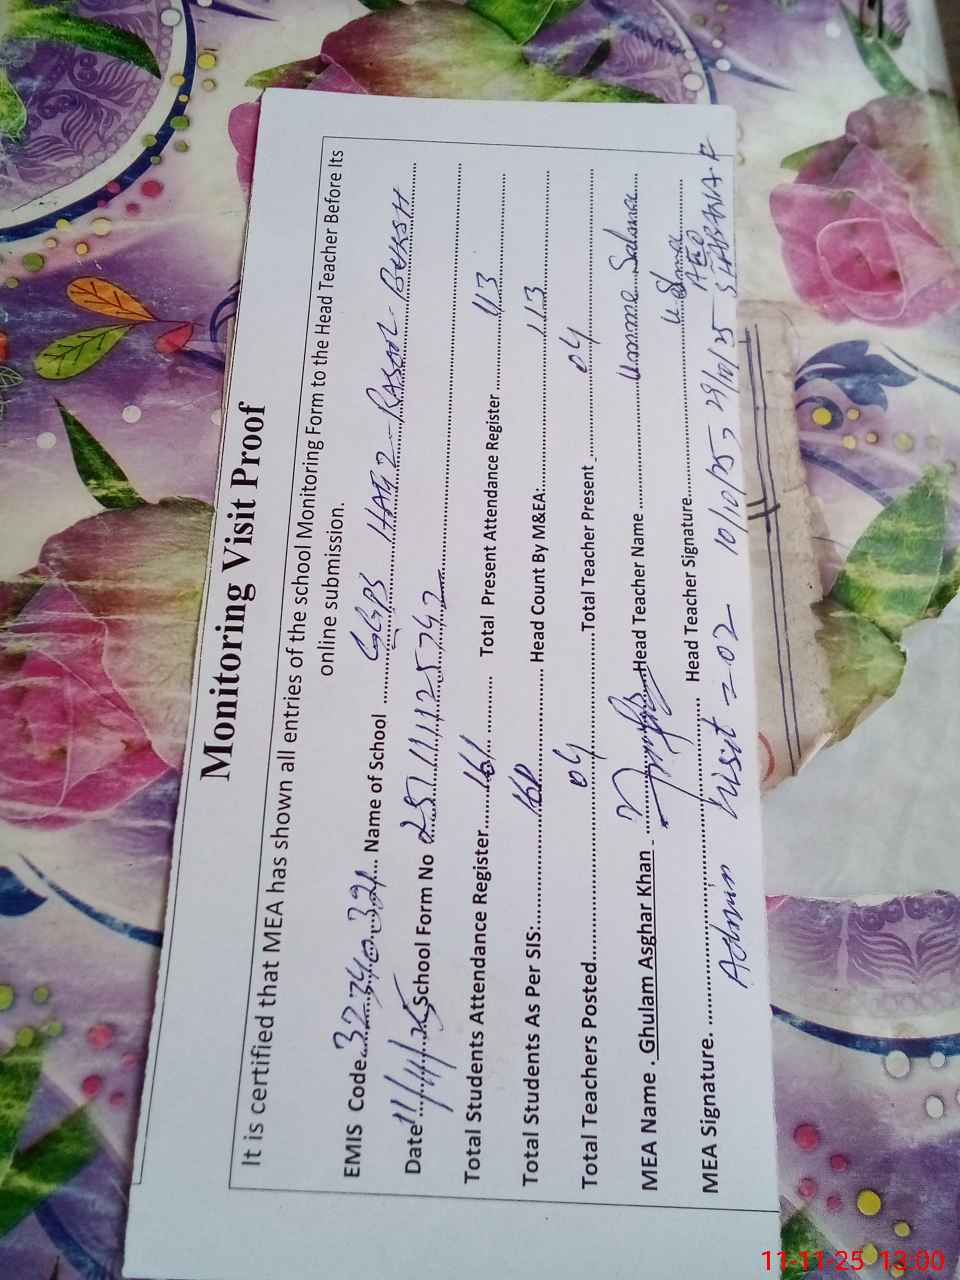 Monitoring Visit Proof
It is certified that MEA has shown all entries of the school Monitoring Form to the Head Teacher Before Its
online submission.
EMIS Code 32740321 Name of School GGPS RASOOL BUKSH
Date 11/11/25 School Form No
Total Students Attendance Register 161 Total Present Attendance Register 113
Total Students As Per SIS: Head Count By M&EA: 113
Total Teachers Posted 04 Total Teacher Present 04
MEA Name . Ghulam Asghar Khan Head Teacher Name Umme Salma
MEA Signature. Head Teacher Signature U. Salma
Admin Visit = 02 10/10/25, 29/10/25 AEO
11-11-25 13:00